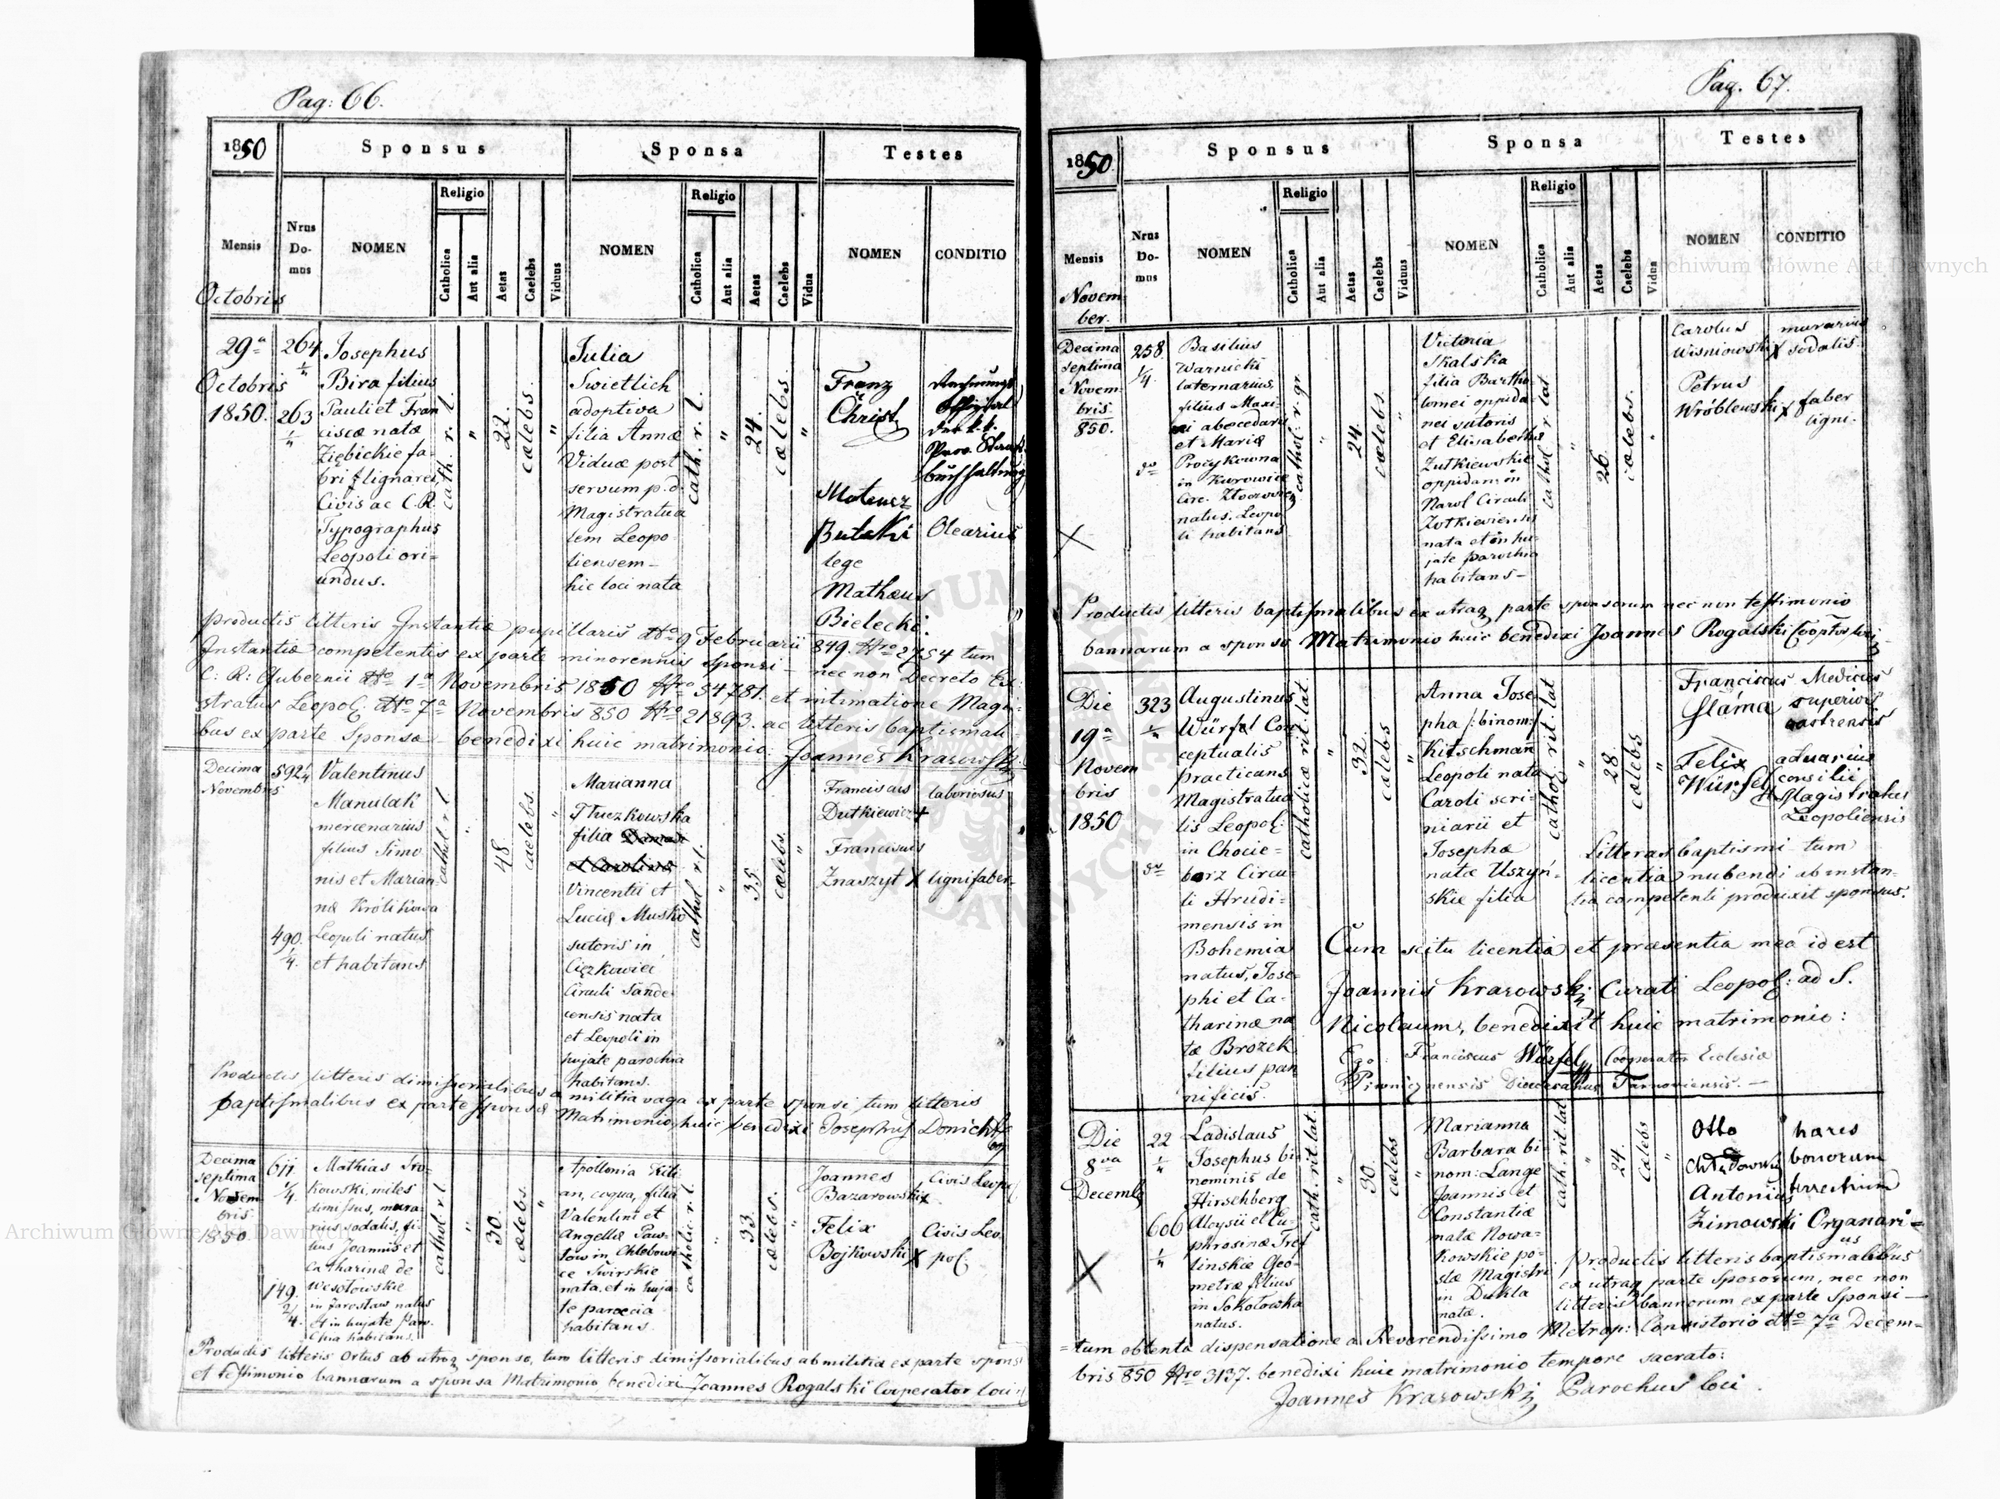 Pag: 66.
1850
Sponsus
Sponsa
Testes
Mensis
Octobris
Nrus Domus
NOMEN
Religio
Catholica
Aut alia
Aetas
Caelebs
Viduus
NOMEN
Religio
Catholica
Aut alia
Aetas
Caelebs
Vidua
NOMEN
CONDITIO
29a
Octobris
1850.
264
263
Josephus
Bira filius
Pauli et Fran
ciscæ natæ
Ziębickie fa-
bri lignarei
Civis ac C.R.
Typographus
Leopoli ori=
undus.
cath. r. l.
"
22.
cælebs.
"
Julia
Swietlich
adoptiva
filia Annæ
Viduæ post
servum p.d.
Magistratua
lem Leopo-
liensem-
hic loci nata
cath. r. l.
"
24.
cælebs.
"
Franz
Christ
Mateusz
Butski
lege
Mathæus
Bielecki.
Olearius
productis litteris Instantiæ pupillaris dto 9 Februarii 849. Nro 2754 tum
Instantiæ competentis ex parte minorennis Sponsi - nec non Decreto Ex:
C: R: Gubernii dto 1a Novembris 1850 Nro 54781. et intimatione Magi-
stratus Leopol: dto 7a Novembris 850 Nro 21893. ac litteris baptismali-
bus ex parte Sponsæ - benedixi huic matrimonio: Joannes Krasowski
Decima
Novembris
592 1/4
490.
1/4.
Valentinus
Manulak
mercenarius
filius Simo
nis et Marian
næ Królikowa
Leopoli natus
et habitans
cathol r. l
48.
cælebs.
"
Marianna
Tluczkowska
filia
et Carolina
Vincentii et
Luciæ Musko
sutoris in
Ciężkowice
Circuli Sande
censis nata
et Leopoli in
hujate parochia
habitans.
cathol r. l.
"
35
cælebs.
"
Franciscus
Dutkiewicz +
laboriosus
Franciscus
Znaszyt X
lignifaber.
Productis litteris dimissorialibus a militia vaga ex parte sponsi tum litteris
baptismalibus ex parte sponsæ Matrimonio huic benedixi Josephus Donicht
Decima
septima
Novem
bris
1850.
611
1/4.
149.
2/4.
Mathias Iro-
kowski, miles
dimissus, mura-
rius sodalis, fi-
lius Joannis et
Catharinæ de
Wesołowskie
in Jarosław natus
et in hujate Paro-
chia habitans.
cathol r. l
"
30.
cælebs.
"
Apollonia Kili-
an, coqua, filia
Valentini et
Angellæ Paw-
low in Chlebowi-
ce Swirskie
nata, et in huja-
te paroecia
habitans.
catholic r. l.
"
33.
cælebs.
"
Joannes
Bazarowski X
Civis Leopol
Felix
Bojkowski X
Civis Leo.
pol
Productis litteris ortus ab utroq sponso, tum litteris dimissorialibus ab militia ex parte sponsi
et testimonio bannorum a sponsa Matrimonio benedixi Joannes Rogalski Cooperator Loci
Pag. 67.
1850.
Sponsus
Sponsa
Testes
Mensis
Novem
ber.
Nrus Domus
NOMEN
Religio
Catholica
Aut alia
Aetas
Caelebs
Viduus
NOMEN
Religio
Catholica
Aut alia
Aetas
Caelebs
Vidua
NOMEN
CONDITIO
Decima
septima
Novem
bris
850.
X
258
1/4.
Basilius
Warnicki
laternarius,
filius Maxi-
mi abecedarii
et Mariæ
Procykowna
in Kurowice
Circ. Złoczovien
natus. Leopo
li habitans
cathol. r. gr.
"
24.
cælebs.
"
Victoria
Skalska
filia Bartho-
lomei oppida-
nei sutoris
et Elisabethæ
Zutkiewskie
oppidan: in
Narol Circuli
Zolkieviensis
nata et in hu-
jate parochia
habitans-
cathol r. lat
"
26.
cælebs.
"
Carolus
Wisniowski X
murarius
sodalis.
Petrus
Wróblewski X
faber
ligni.
Productis litteris baptismalibus ex utraq parte sponsorum nec non testimonio
bannorum a sponso Matrimonio huic benedixi Joannes Rogalski Cooptor loci
Die
19a
Novem
bris
1850
323
Augustinus
Würfel Con
ceptualis
practicans
Magistratua
lis Leopol:
in Chocie=
borz Circu-
li Hrudi-
mensis in
Bohemia
natus, Jose-
phi et Ca-
tharinæ na
tæ Brozek
filius pan
nificis.
catholicæ rit. lat.
"
32.
cælebs
"
Anna Jose
pha /:binom:/
Kitschman
Leopoli nata
Caroli scri-
niarii et
Josephæ
natæ Uszyń-
skie filia
cathol. rit. lat
"
28.
cælebs
"
Franciscus
Sláma
Medicus
superior
castrensis
Felix
Würfel
actuarius
consilii
Magistratus
Leopoliensis
Litteras baptismi tum
licentiam nubendi ab instan-
tia competenti produxit sponsus.
Cum scitu licentia et præsentia mea id est
Joannis Krasowski Curati Leopol: ad S.
Nicolaum, benedixit huic matrimonio:
Ego: Franciscus Würfel, Cooperator Ecclesiæ
Piwnicznensis Diœcesanus Tarnoviensis. -
Die
8va
Decemb
X
22
606
Ladislaus
Josephus bi
nominis de
Hirschberg
Aloysii et Eu-
phrosinæ Tref
linskæ Geo-
metræ filius
in Sokołowka
natus.
cath. rit. lat.
"
30.
cælebs
"
Marianna
Barbara bi
nom: Lange
Joannis et
Constantiæ
natæ Nowa-
kowskie po-
stæ Magistri
in Dukla
nata.
cath. rit. lat
"
24.
cælebs
"
Otto
hæres
bonorum
terrestrium
Antonius
Zimowski
Organari=
us
Productis litteris baptismalibus
ex utraq parte Sponsorum, nec non
litteris bannorum ex parte Sponsi -
= tum obtenta dispensatione a Reverendissimo Metrop: Consistorio dto 7a Decem-
bris 850 Nro 3137. benedixi huic matrimonio tempore sacrato:
Joannes Krasowski Parochus loci.
Archiwum Główne Akt Dawnych
Archiwum Główne Akt Dawnych